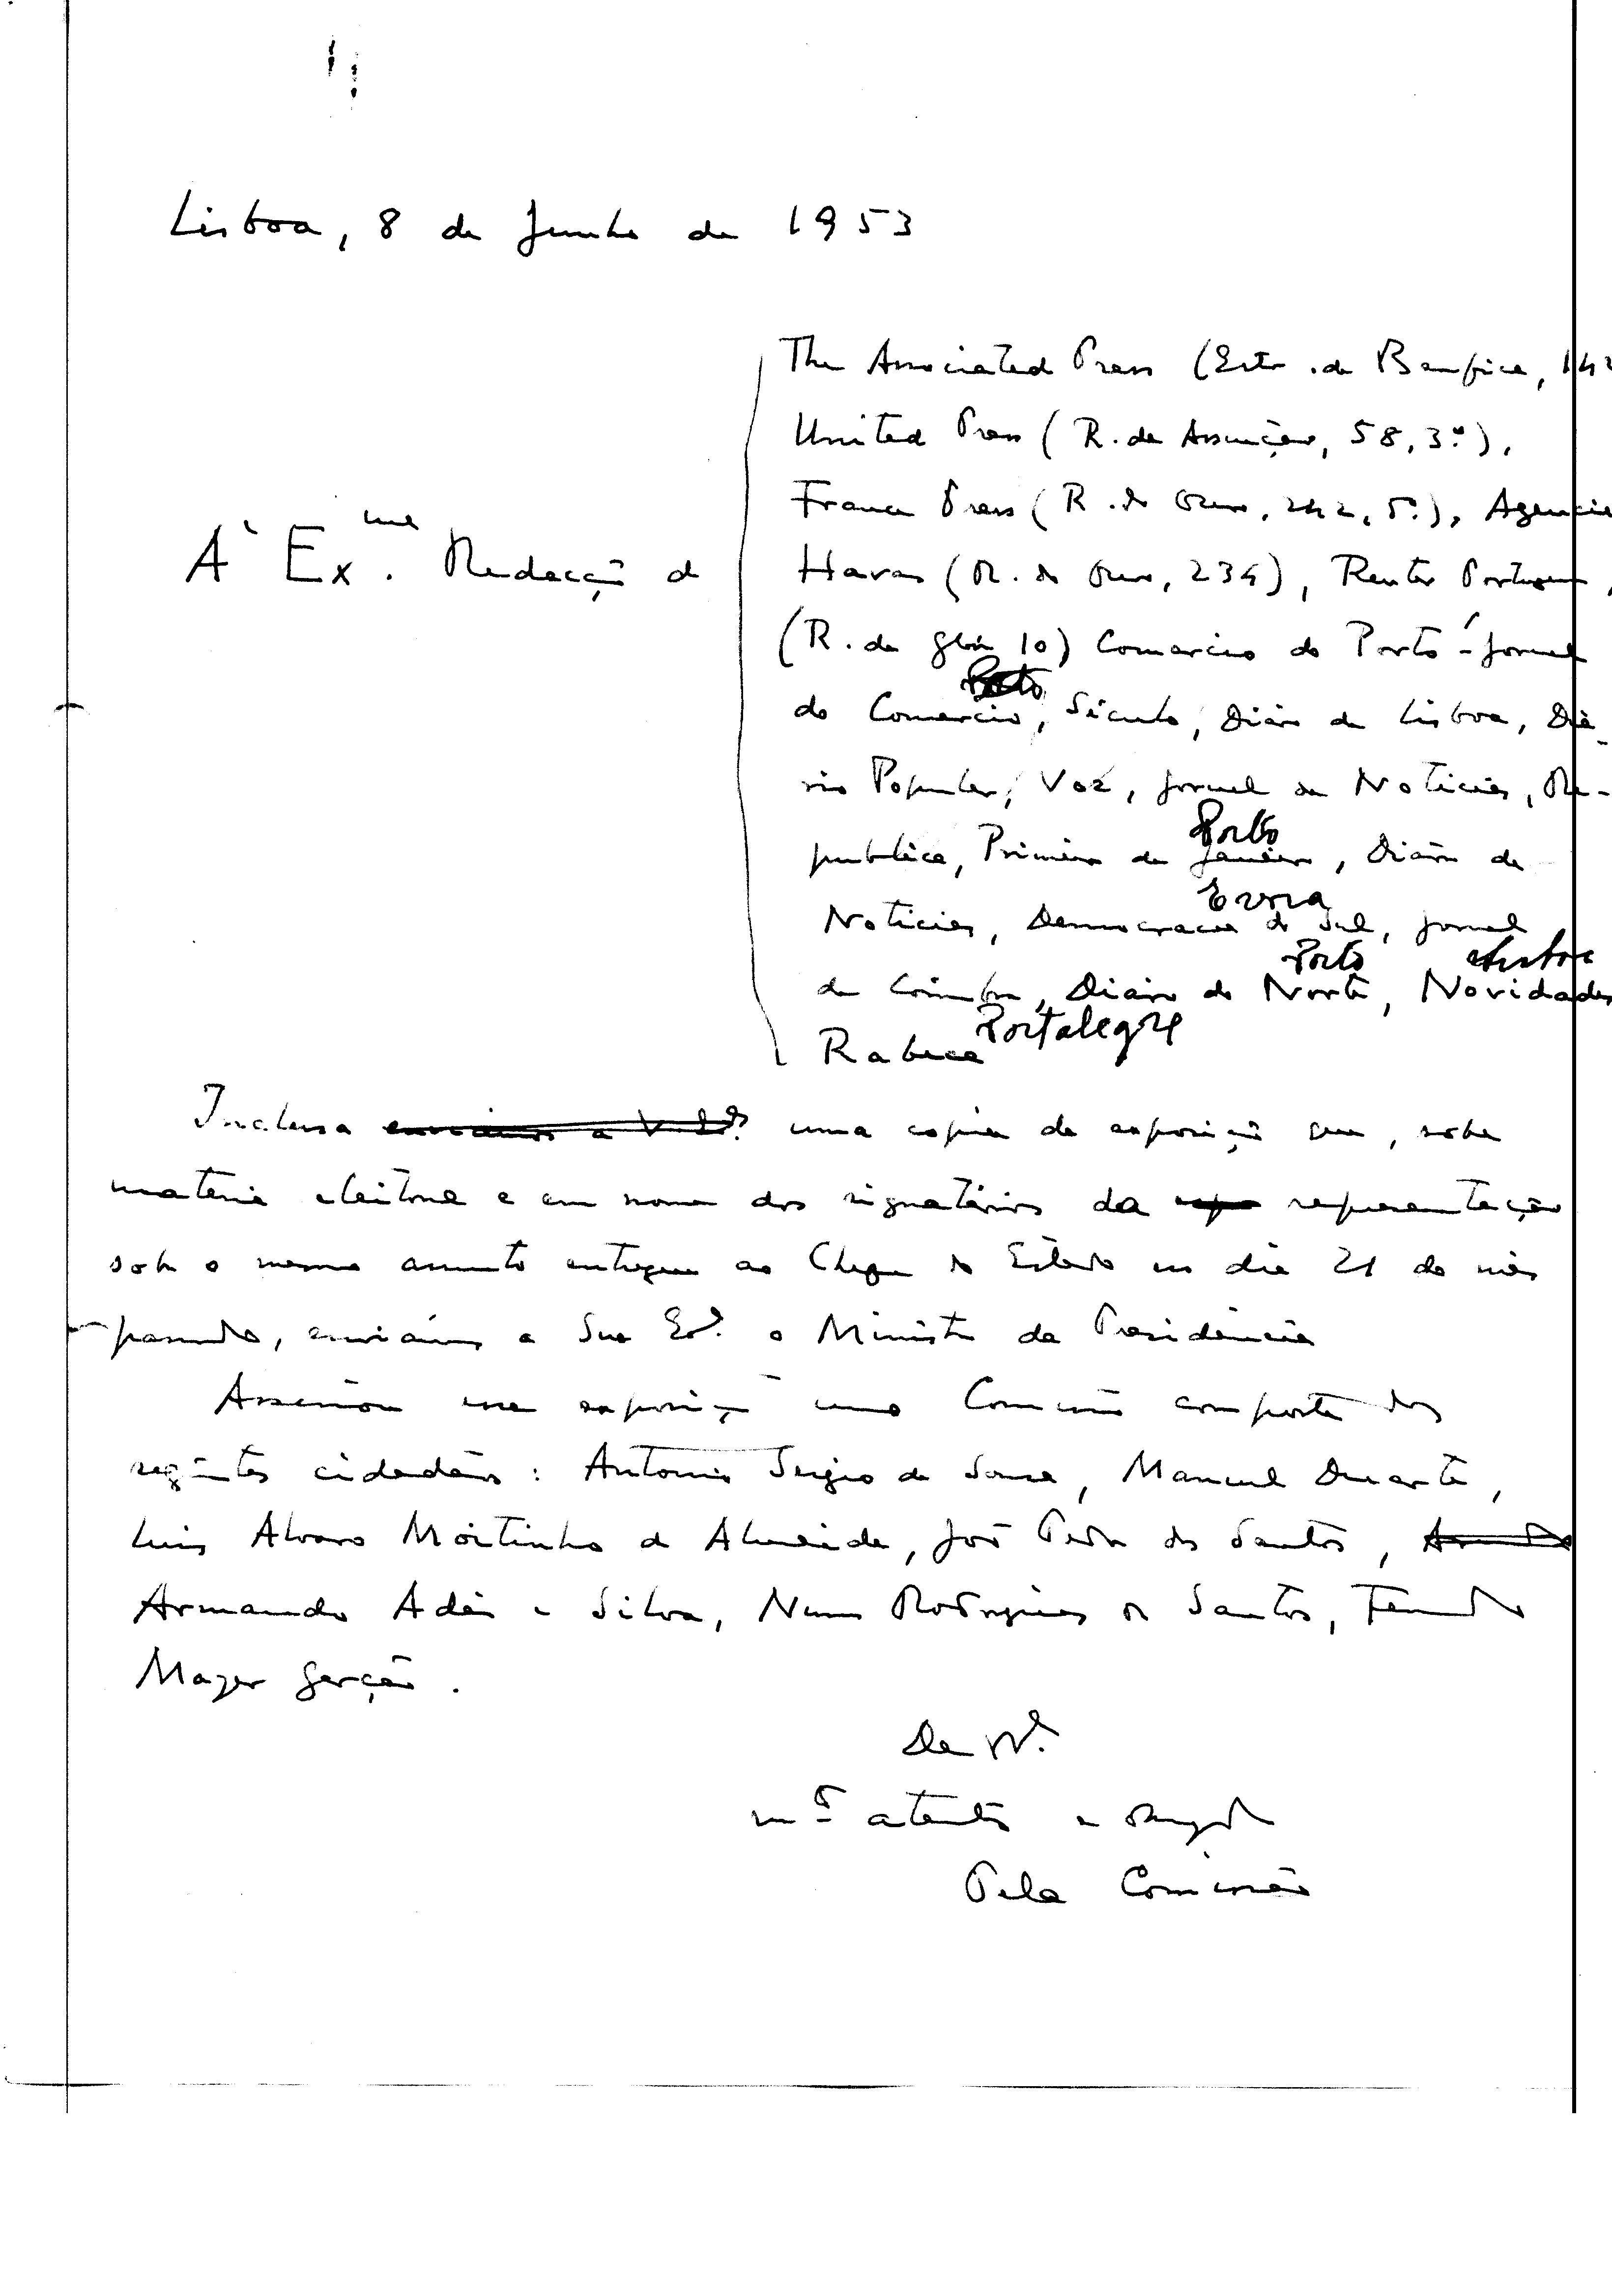 Lisboa, 8 de Junho de 1953
The Associated Press (Estr. de Bemfica, 142
United Press (R. da Assunção, 58, 3º),
France Press (R. do Ouro, 242, 5º), Agencia
À Exma. Redacção de
Havas (R. do Ouro, 234), Reuter Portuguesa,
(R. da Glória 10) Comercio do Porto - Jornal
do Comercio, Século, Diário de Lisboa, Diá-
rio Popular, Voz, Jornal de Noticias, Re-
Porto
publica, Primeiro de Janeiro, Diário de
Evora
Noticias, Democracia do Sul, Jornal
Porto Lisboa
de Coimbra, Diário do Norte, Novidades
Portalegre
Rabeca
Inclusa enviamos a V. Exª. uma copia da exposição que, sobre
materia eleitoral e em nome dos signatários da representação
sobre o mesmo assunto entregue ao Chefe do Estado no dia 21 do mês
passado, enviámos a Sua Exª. o Ministro da Presidência
Assinou essa exposição uma Comissão composta dos
seguintes cidadãos: Antonio Sergio de Sousa, Manuel Duarte,
Luis Alvaro Moitinho de Almeida, João Pedro dos Santos,
Armando Adão e Silva, Nuno Rodrigues dos Santos, Fernando
Mayer Garção.
De V.
mtº atentos e obrigados
Pela Comissão